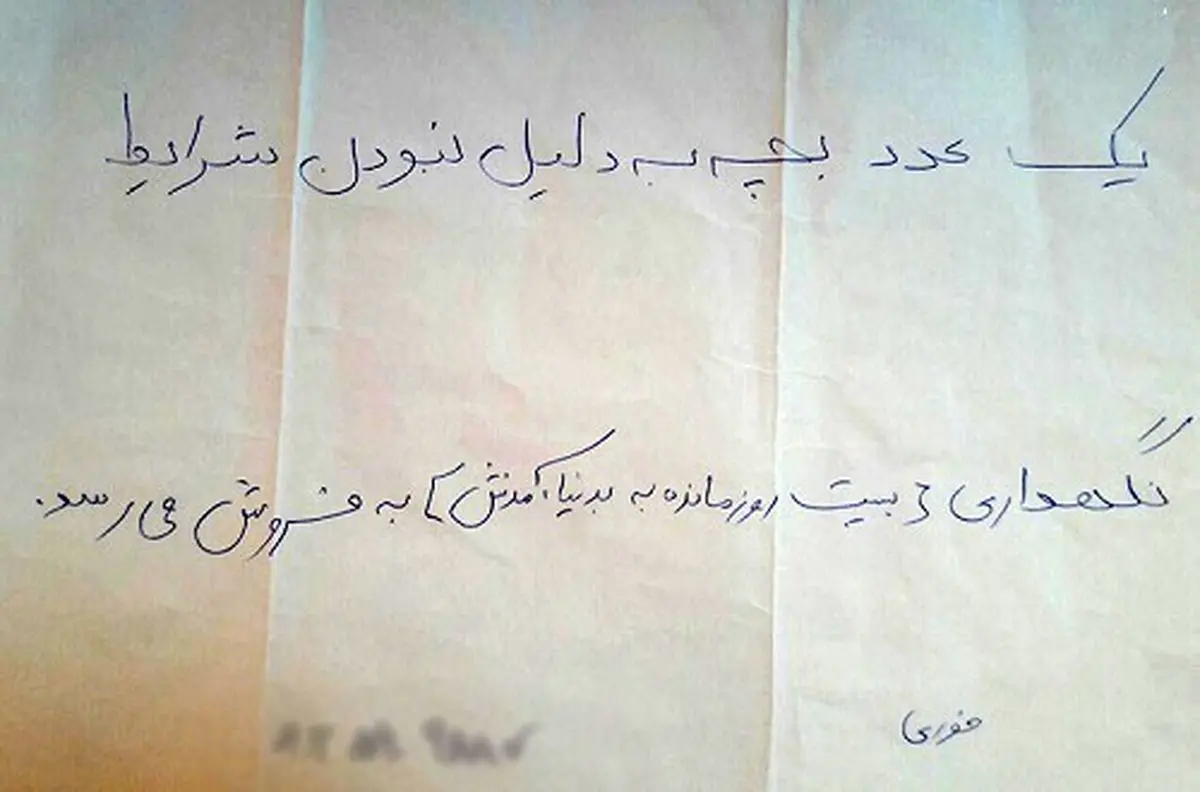 یک عدد بچه به دلیل نبودن شرایط
نگهداری { بیست روز مانده به بدنیا آمدنش } به فروش می رسد.
فوری